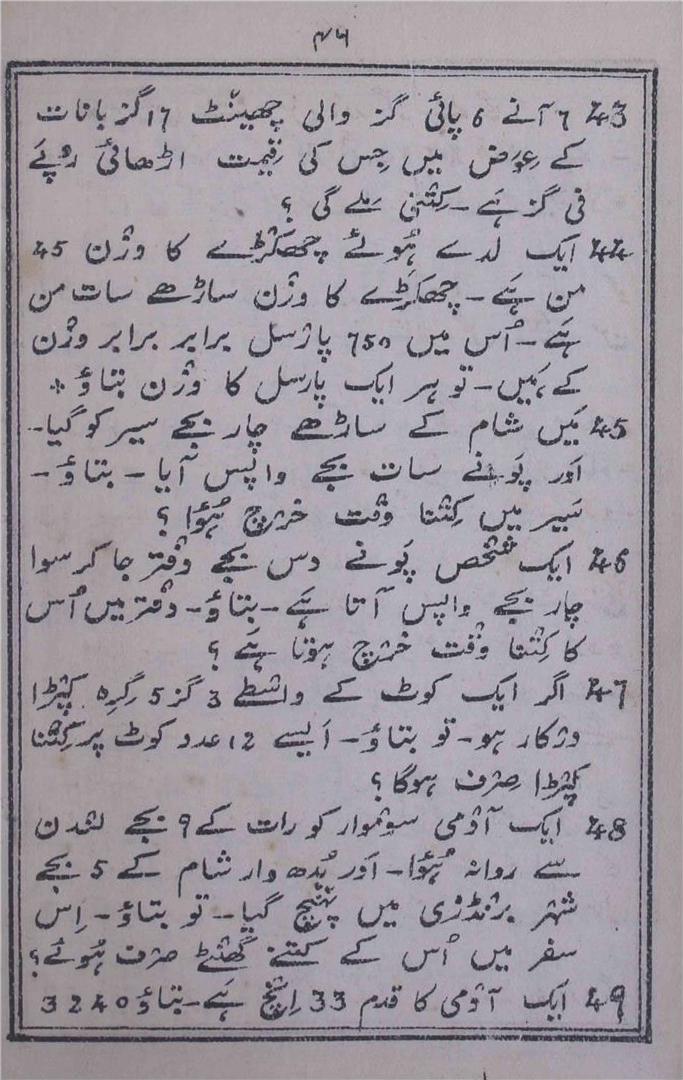 ۴۶
43 7 آنے 6 پائی گز والی چھینٹ 17 گز بانات
کے عِوَض میں جِس کی قِیمت اڑھائی رُوپَے
فی گز ہَے۔ کِتنی مِلے گی ؟
44 ایک لدے ہُوئے چھکڑے کا وزْن 45
من ہَے۔ چھکڑے کا وزْن ساڑھے سات من
ہَے۔ اُس میں 750 پارْسل برابر برابر وزْن
کے ہَیں۔ تو ہر ایک پارسل کا وزْن بتاؤ *
45 مَیں شام کے ساڑھے چار بجے سیر کو گیا۔
اَور پَونے سات بجے واپس آیا۔ بتاؤ۔
سَیر میں کِتْنا وقْت خرْچ ہُؤا ؟
46 ایک شخْص پَونے دس بجے دفْتر جا کر سوا
چار بجے واپس آتا ہَے۔ بتاؤ۔ دفْتر میں اُس
کا کِتْنا وقْت خرْچ ہوتا ہَے ؟
47 اگر ایک کوٹ کے واسْطے 3 گز 5 گِرہ کپْڑا
درْکار ہو۔ تو بتاؤ۔ اَیسے 12 عدد کوٹ پر کِتْنا
کپْڑا صرْف ہوگا ؟
48 ایک آدْمی سوموار کو رات کے 9 بجے لنْدن
سے روانہ ہُؤا۔ اَور بُدھ وار شام کے 5 بجے
شہْر برنْڈزی میں پہُنْچ گیا۔ تو بتاؤ۔ اِس
سفر میں اُس کے کتنے گھنْٹے صرْف ہُوئے ؟
49 ایک آدْمی کا قدم 33 اِنْچ ہَے۔ بتاؤ 3240